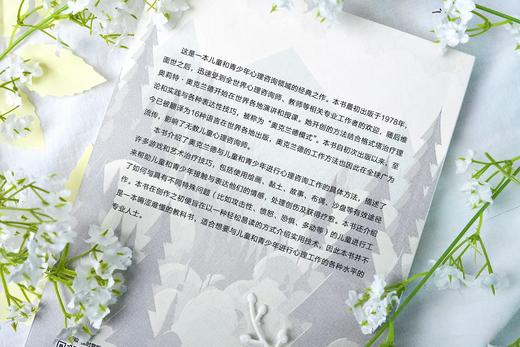 这是一本儿童和青少年心理咨询领域的经典之作。本书最初出版于1978年，
面世之后，迅速受到全世界心理咨询师、教师等相关专业工作者的欢迎，随后维
奥莉特·奥克兰德开始在世界各地演讲和授课。她开创的方法结合格式塔治疗理
论和实践与各种表达性技巧，被称为“奥克兰德模式”。本书自初次出版以来，至
今已被翻译为16种语言在世界各地出版，奥克兰德的工作方法也因此在全球广为
流传，影响了无数儿童心理咨询师。
本书介绍了奥克兰德与儿童和青少年进行心理咨询工作的具体方法，描述了
许多游戏和艺术治疗技巧，包括使用绘画、黏土、故事、布偶、沙盘等有效途径
来帮助儿童和青少年接触与表达他们的情感，处理创伤及获得疗愈。本书还介绍
了如何与具有不同特殊问题（比如攻击性、愤怒、恐惧、多动等）的儿童进行工
作。本书在创作之初便旨在以一种轻松易读的方式介绍实用技术，因此本书并不
是一本晦涩难懂的教科书，适合想要与儿童和青少年进行心理工作的各种水平的
专业人士。